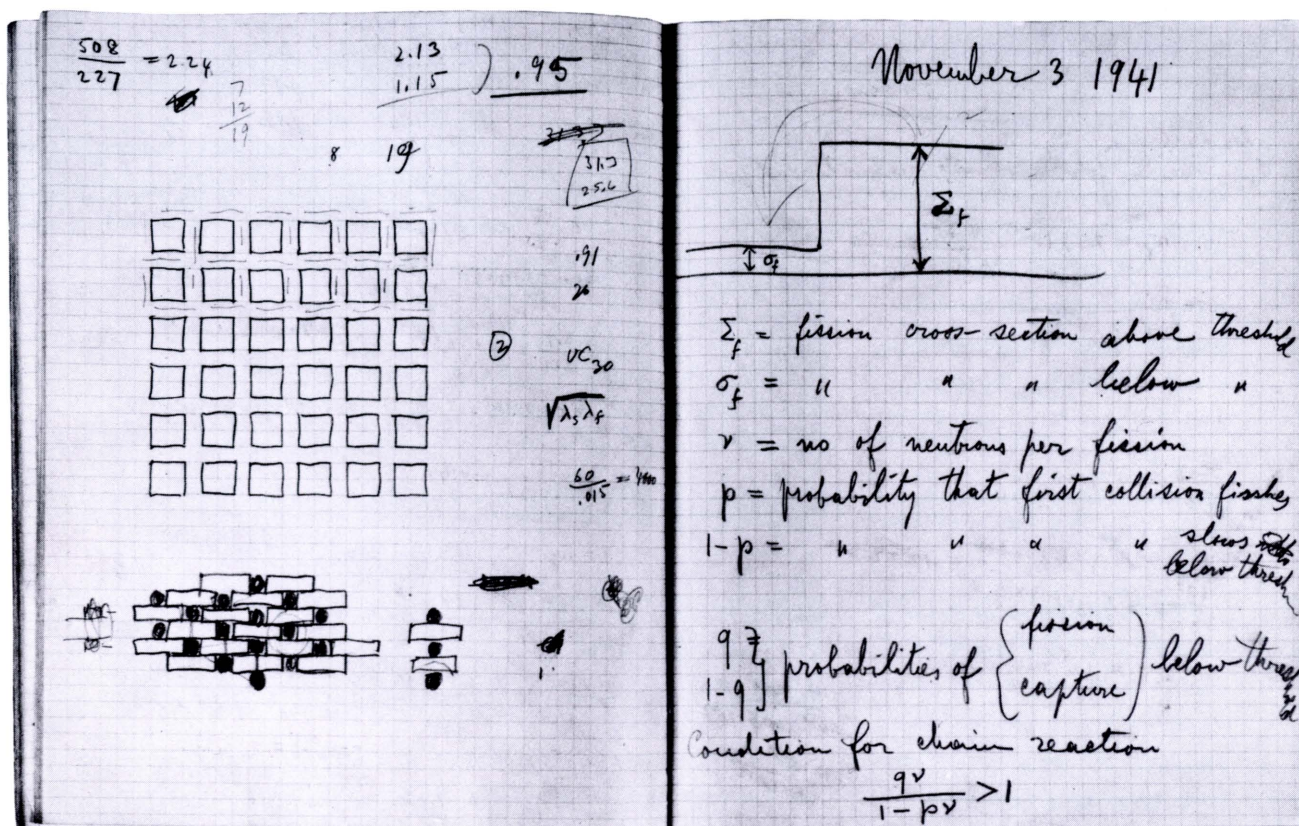 508
227
= 2.24
7
12
19
2.13
1.15
.95
8
31.5
25.6
.91
20
②
UC30
√λs λf
60
.015
November 3 1941
Σf
σf
Σf = fission cross-section above threshold
σf = " " " below "
ν = no of neutrons per fission
p = probability that first collision fissions
1-p = " " " " slows
below thresh
q
1-q
} probabilities of { fission
capture } below threshold
Condition for chain reaction
qν
1-pν
> 1